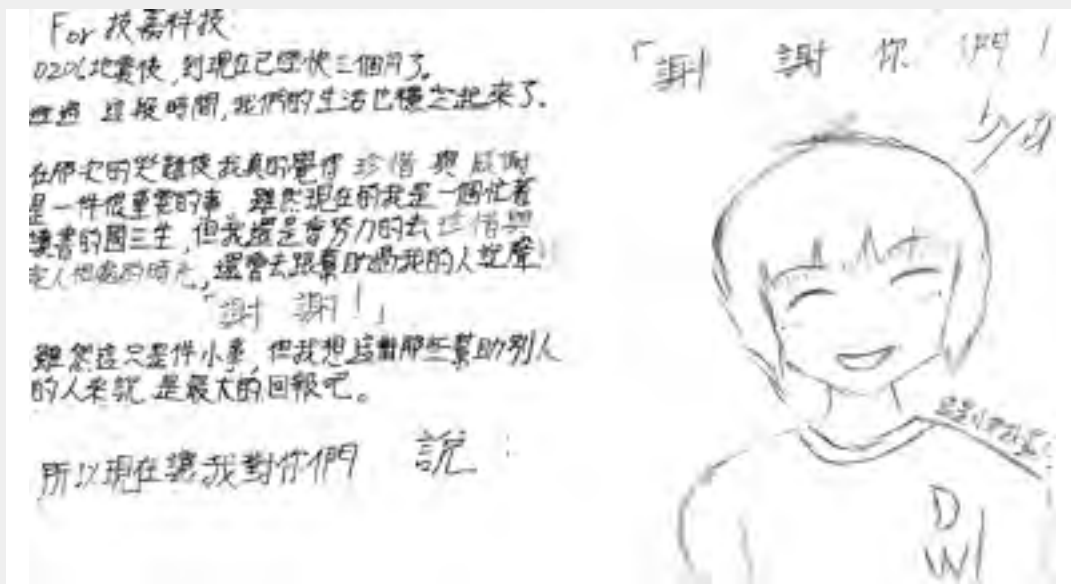 For 技嘉科技
0206地震後,到現在已經快三個月了。
經過 這段時間,我們的生活也穩定起來了。
在那次的災難後我真的覺得 珍惜 與 感謝
是一件很重要的事 雖然現在的我是一個忙著
讀書的國三生,但我還是會努力的去 珍惜與
家人相處的時光,還會去跟幫助過我的人說聲
「謝 謝!」
雖然這只是件小事,但我想這對那些幫助別人
的人來說 是最大的回報吧。
所以現在讓我對你們 說:
「謝 謝 你 們!
D
W